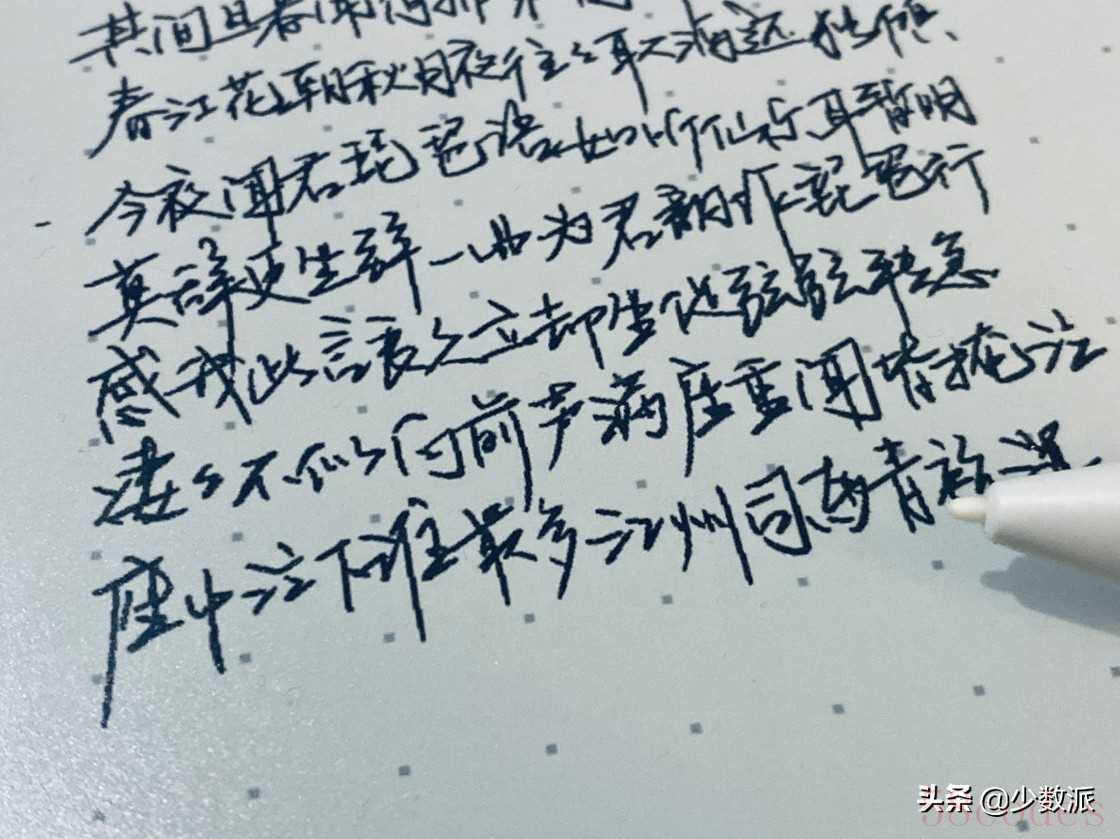 其间旦暮闻何物
春江花朝秋月夜往々取酒还独倾
今夜闻君琵琶语如听仙乐耳暂明
莫辞更坐弹一曲为君翻作琵琶行
感我此言良久立却坐促弦弦转急
凄々不似向前声满座重闻皆掩泣
座中泣下谁最多江州司马青衫湿
头条 @少数派